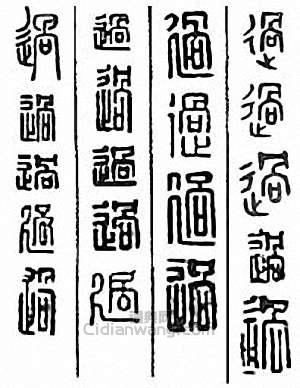 過過過過過
過過過過
過過過過過
過過過過過
词典网
Cidianwang.com